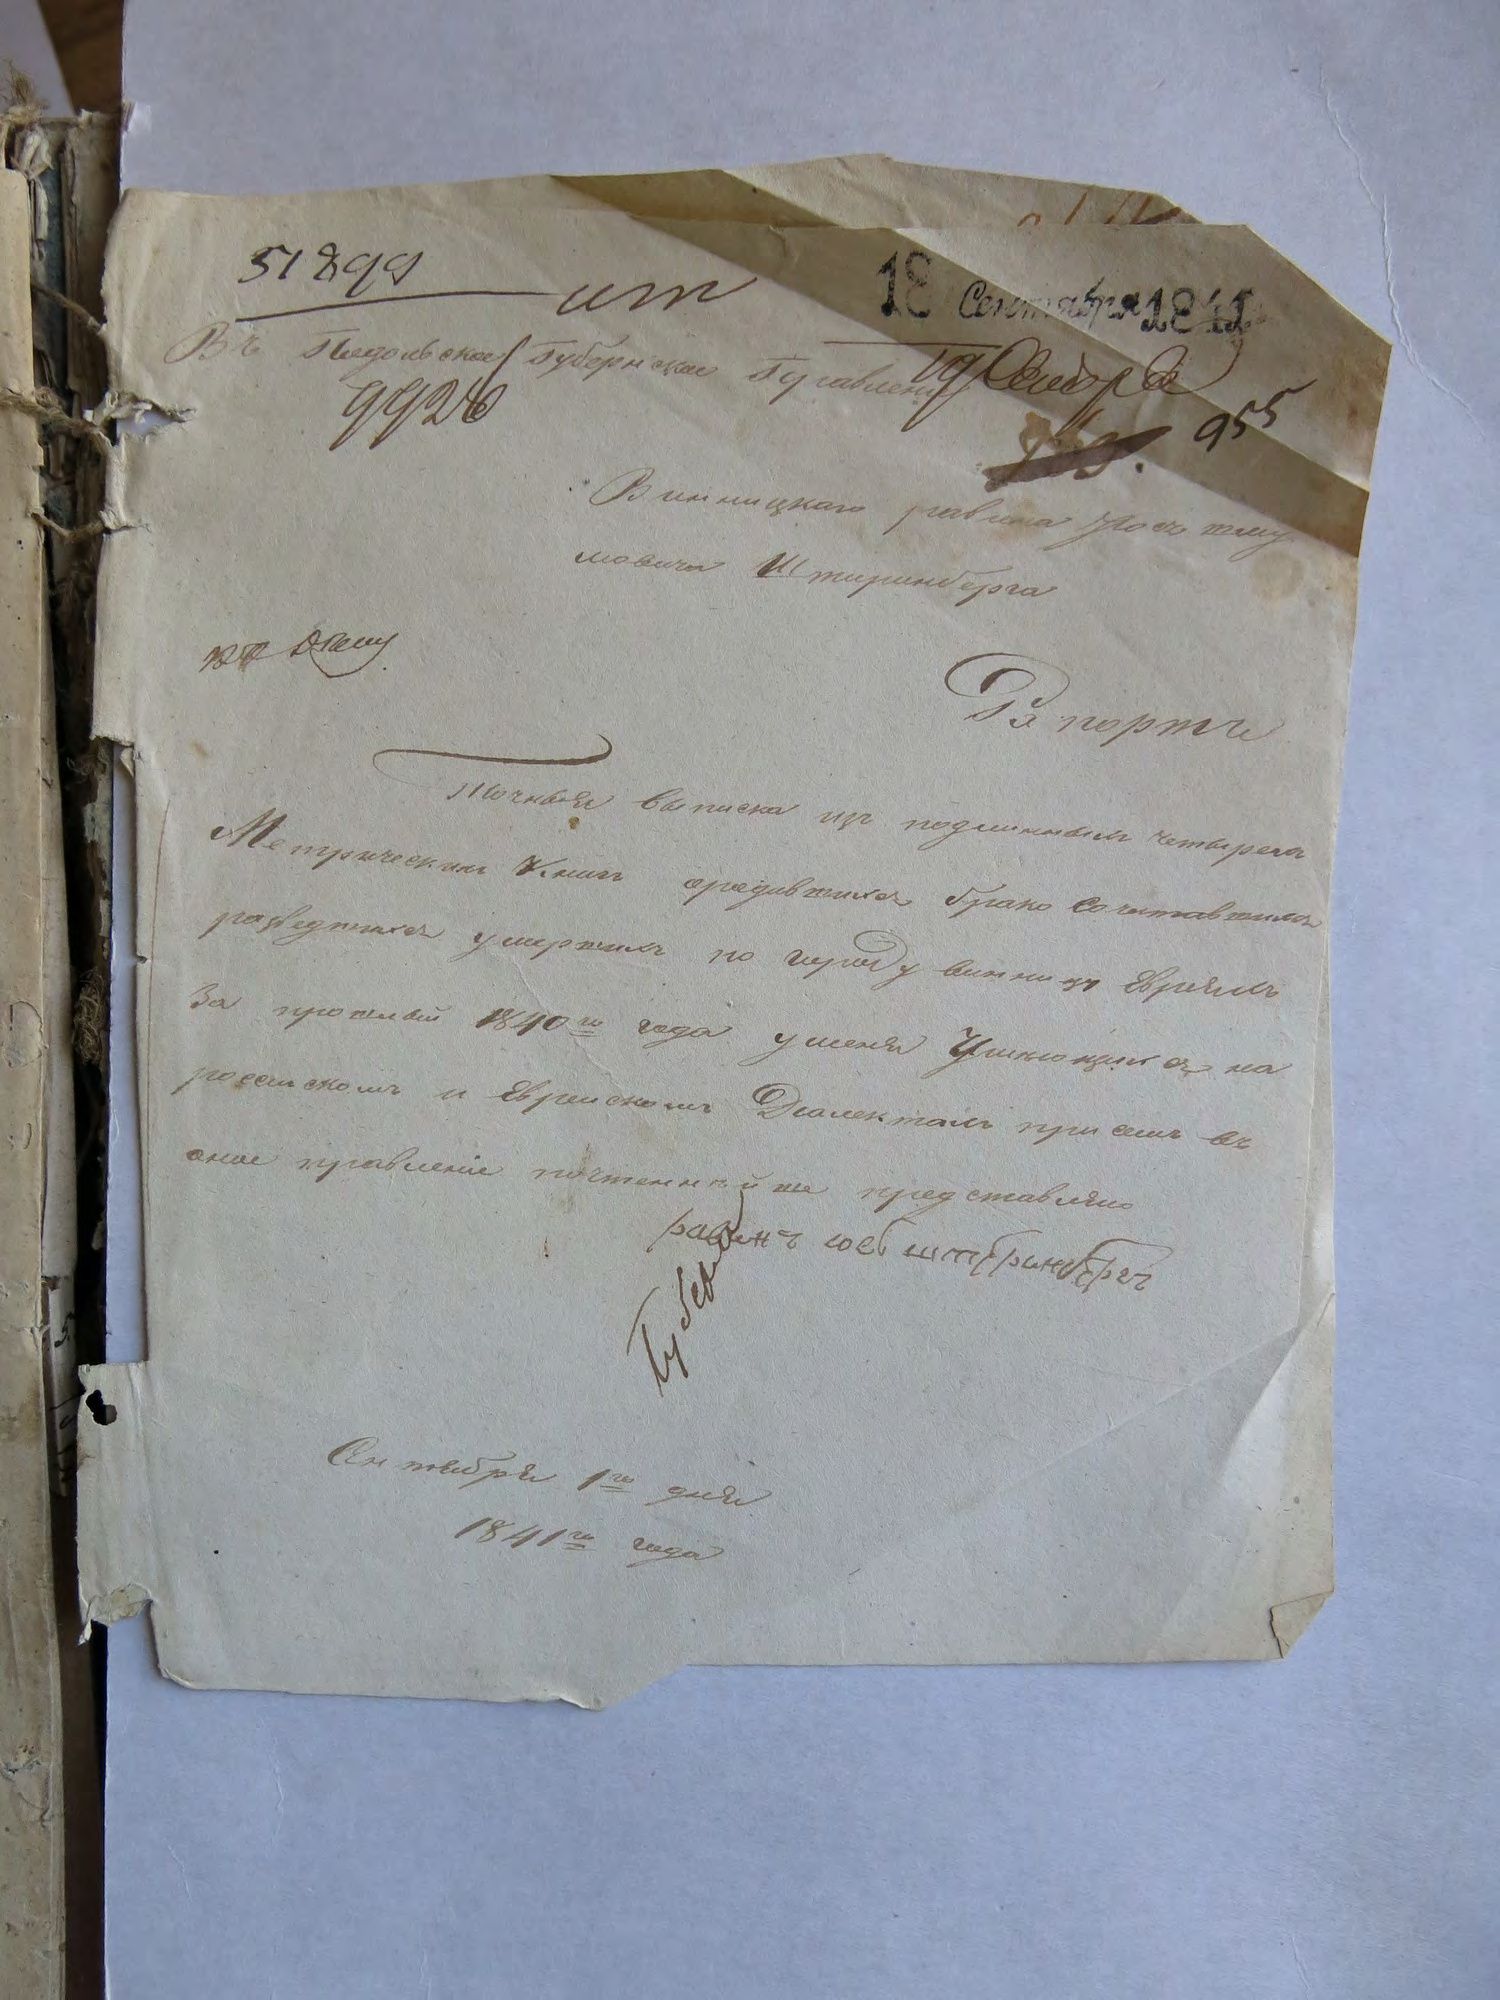 51899
18 Сентября 1841
Въ Подольское Губернское Правление
9926
955
Винницкаго равина
мовича Штеренберга
къ делу
Рапортъ
Точныя выписки изъ подлинныхъ четырехъ
Метрическихъ Книгъ бракосочетавшихъ
разведшихся умершихъ по городу винницу Евреямъ
за прошлый 1840го года у меня имеющихся на
россискомъ и Еврейскомъ Диалектахъ при семъ въ
оное правление почтеннейше представляю
равинъ юсь штеренбергъ
Сентября 1го дня
1841го года